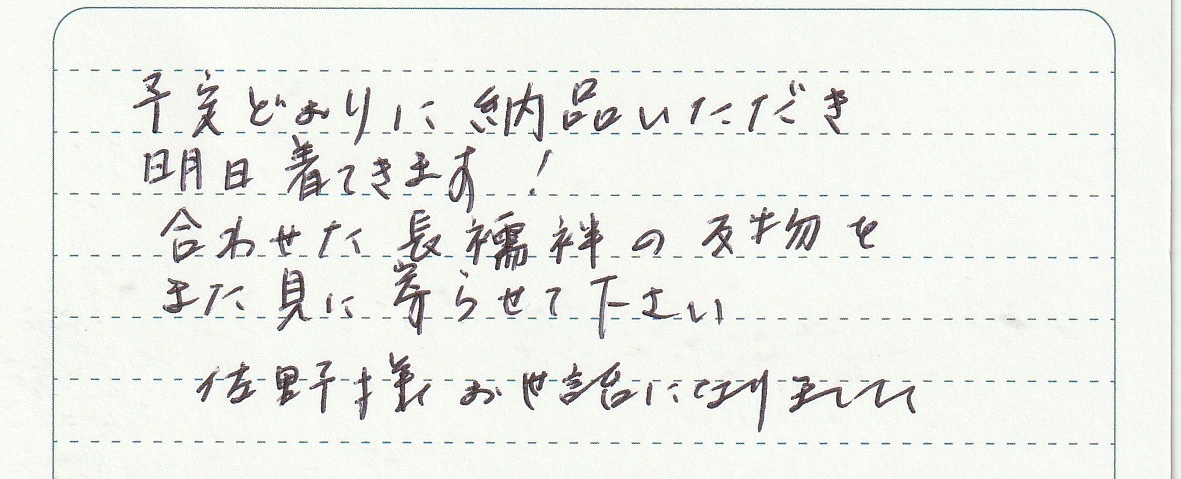 予定どおりに納品いただき
明日着てきます！
合わせた長襦袢の反物を
また見に寄らせて下さい
佐野様お世話になりました